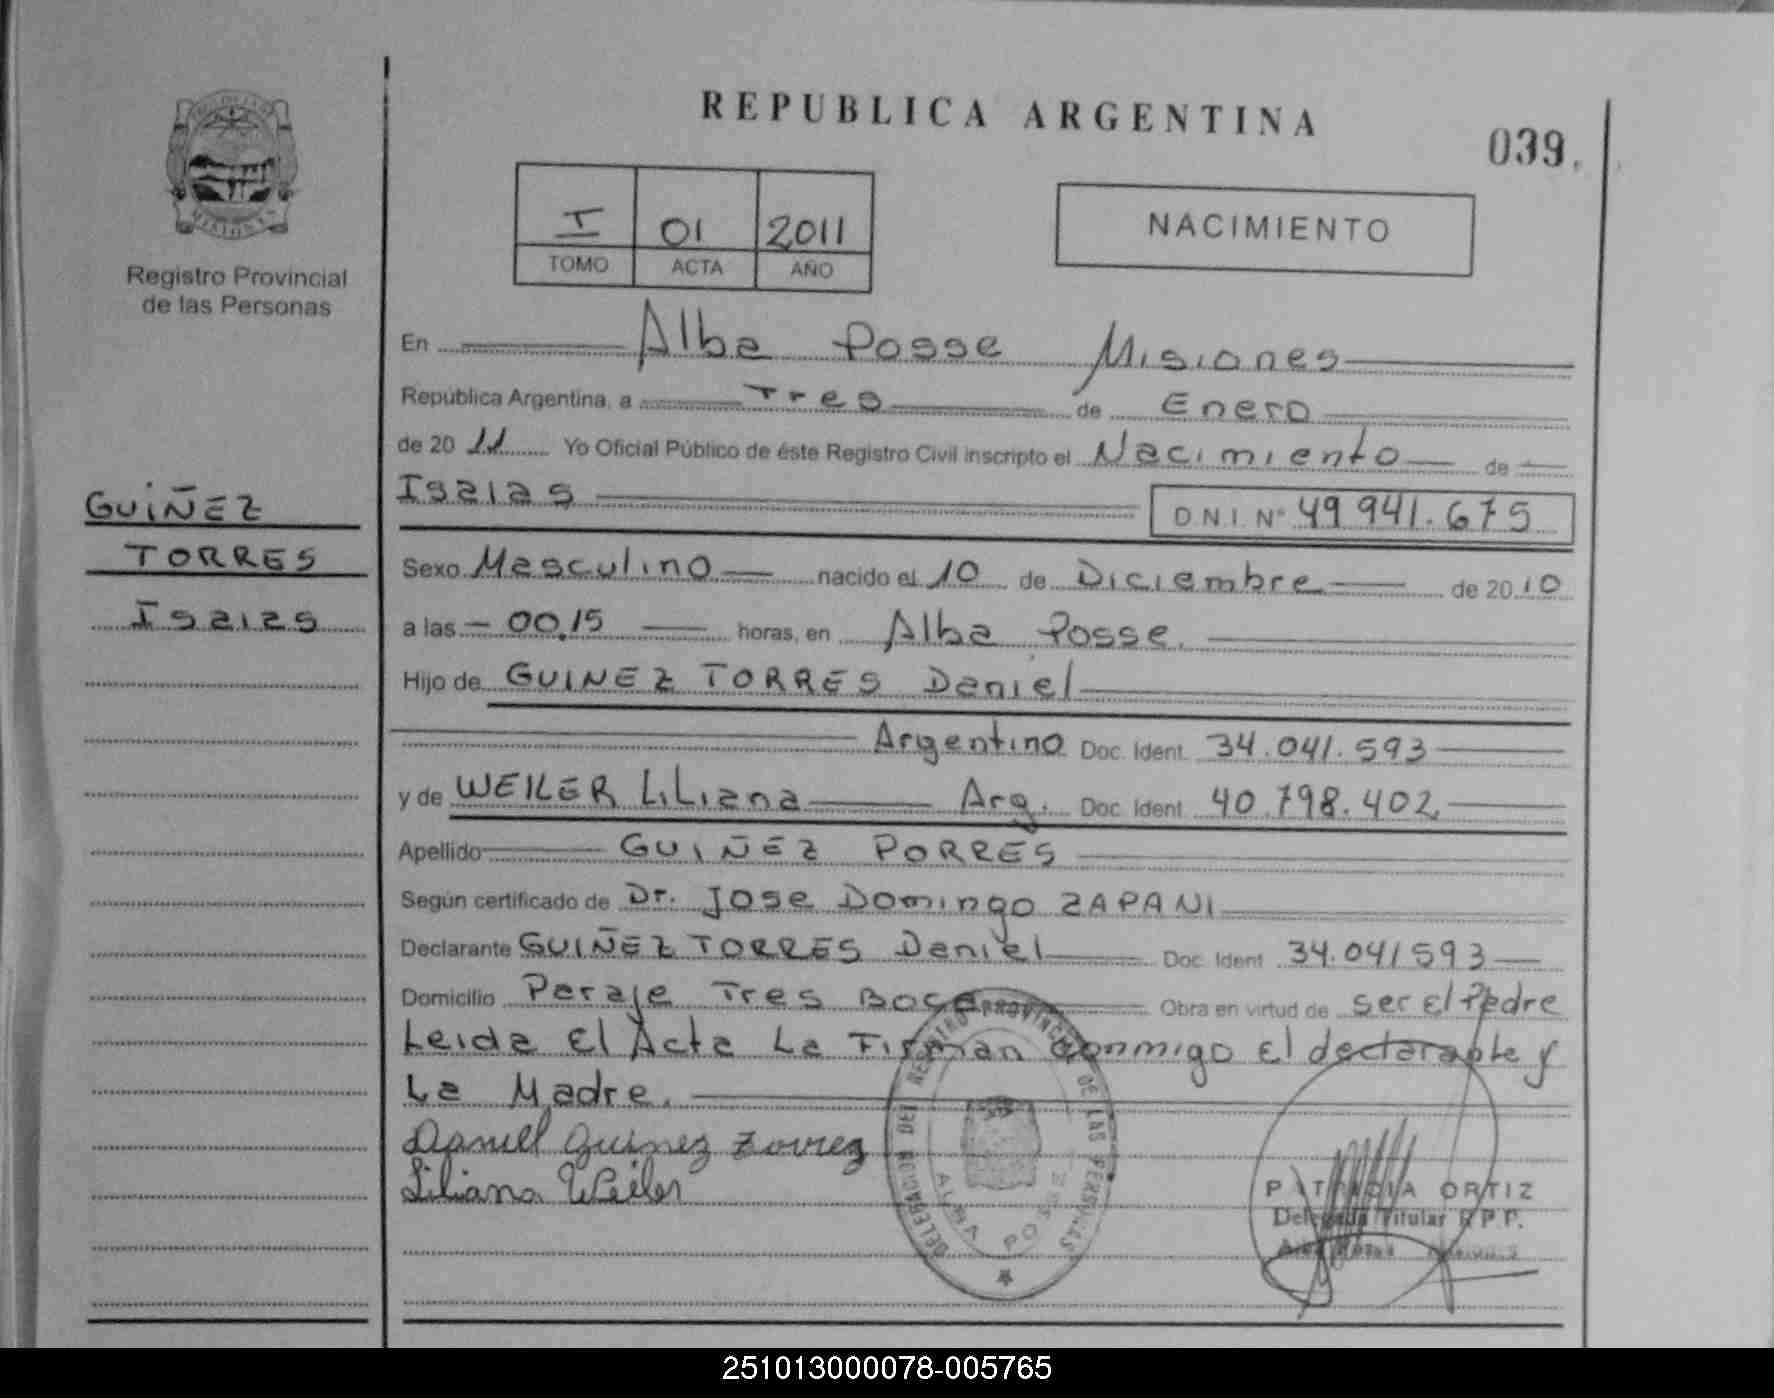 REPUBLICA ARGENTINA
039.
I 01 2011
TOMO ACTA AÑO
NACIMIENTO
MISIONES
Registro Provincial
de las Personas
GUIÑEZ
TORRES
Isaias
En Alba Posse Misiones
República Argentina, a Tres de Enero
de 2011 Yo Oficial Público de éste Registro Civil inscripto el Nacimiento de
Isaias D.N.I. Nº 49 941.675
Sexo Masculino nacido el 10 de Diciembre de 2010
a las 00,15 horas, en Alba Posse.
Hijo de GUINEZ TORRES Daniel
Argentino Doc. Ident. 34.041.593
y de WEILER LiLiana Arg. Doc. Ident. 40.798.402
Apellido GUIÑEZ PORRES
Según certificado de Dr. Jose Domingo ZAPANI
Declarante GUIÑEZ TORRES Daniel Doc. Ident 34.041593
Domicilio Paraje Tres Boca Obra en virtud de ser El Padre
Leida El Acta La Firman conmigo El declarante y
La Madre.
Daniel Guinez Torrez
Liliana Weiler
DELEGACION DEL REGISTRO PROVINCIAL DE LAS PERSONAS
ALBA POSSE
PATRICIA ORTIZ
Delegada Titular R.P.P.
251013000078-005765